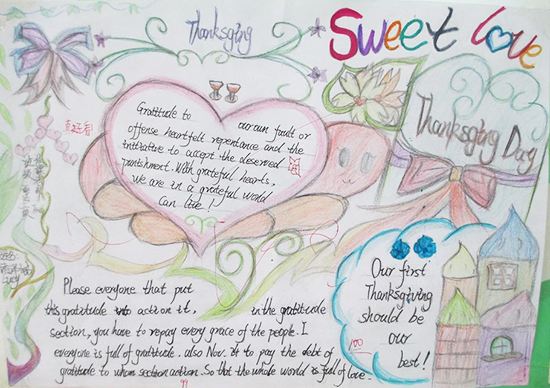 Thanksging
Sweet Love
Thanksging Day
真好看
Gratitude to our own fault or
offense heartfelt repentance and the
initiative to accept the deserved
punishment. With grateful hearts,
we are in a grateful world
can live!
Our first
Thanksgiving
should be
our
best!
100
Please everyone that put
this gratitude into action it, in the gratitude
section, you have to repay every grace of the people. I
everyone is full of gratitude, also Nov. 24 to pay the debt of
gratitude to whom section action. So that the whole world is full of love
99